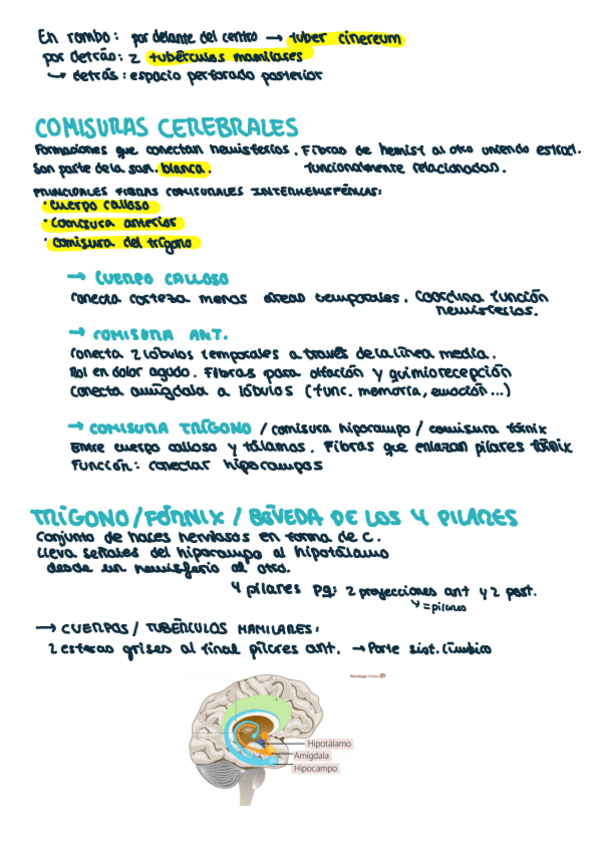 En rombo: por delante del centro → tuber cinereum
por detrás: 2 tubérculos mamilares
↳ detrás: espacio perforado posterior
COMISURAS CEREBRALES
Formaciones que conectan hemisferios. Fibras de hemisf al otro uniendo estruct.
Son parte de la sust. blanca. funcionalmente relacionadas.
PRINCIPALES FIBRAS COMISURALES INTERHEMISFÉRICAS:
· Cuerpo calloso
· Comisura anterior
· comisura del trígono
→ CUERPO CALLOSO
Conecta corteza menos áreas temporales. Coordina función
hemisferios.
→ COMISURA ANT.
Conecta 2 lóbulos temporales a través de la línea media.
Rol en dolor agudo. Fibras para olfación y quimiorecepción
Conecta amígdala a lóbulos (func. memoria, emoción...)
→ COMISURA TRÍGONO / comisura hipocampo / comisura fórnix
Entre cuerpo calloso y tálamos. Fibras que enlazan pilares fórnix
Función: conectar hipocampos
TRÍGONO / FÓRNIX / BÓVEDA DE LOS 4 PILARES
Conjunto de haces nerviosos en forma de C.
Lleva señales del hipocampo al hipotálamo
desde un hemisferio al otro.
4 pilares pq: 2 proyecciones ant y 2 post.
4 = pilares
→ CUERPOS / TUBÉRCULOS MAMILARES:
2 esferas grises al final pilares ant. → Parte sist. límbico
Hipotálamo
Amígdala
Hipocampo